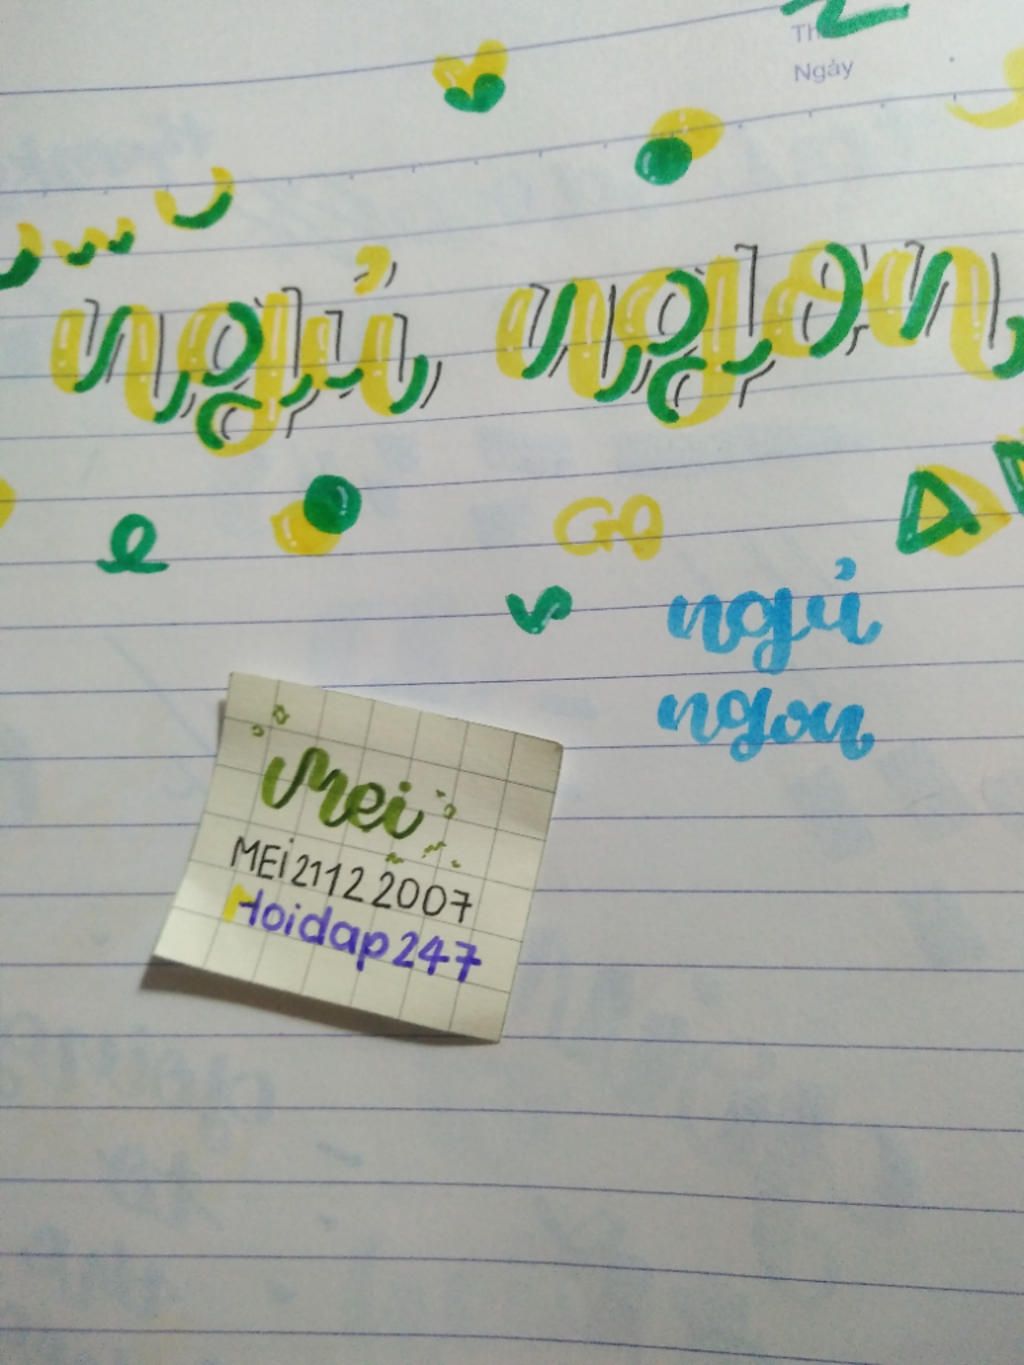 Ngày
ngủ ngon
ngủ
ngon
Mei
MEi21122007
Hoidap247